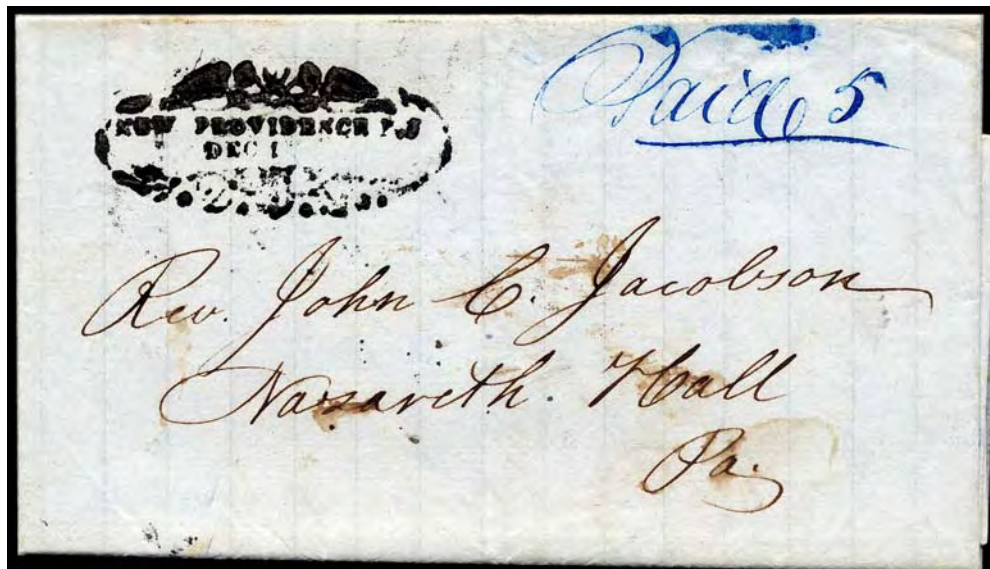 Paid 5
NEW PROVIDENCE N.J
DEC 1
Rev. John C. Jacobson
Nazareth. Hall
Pa.